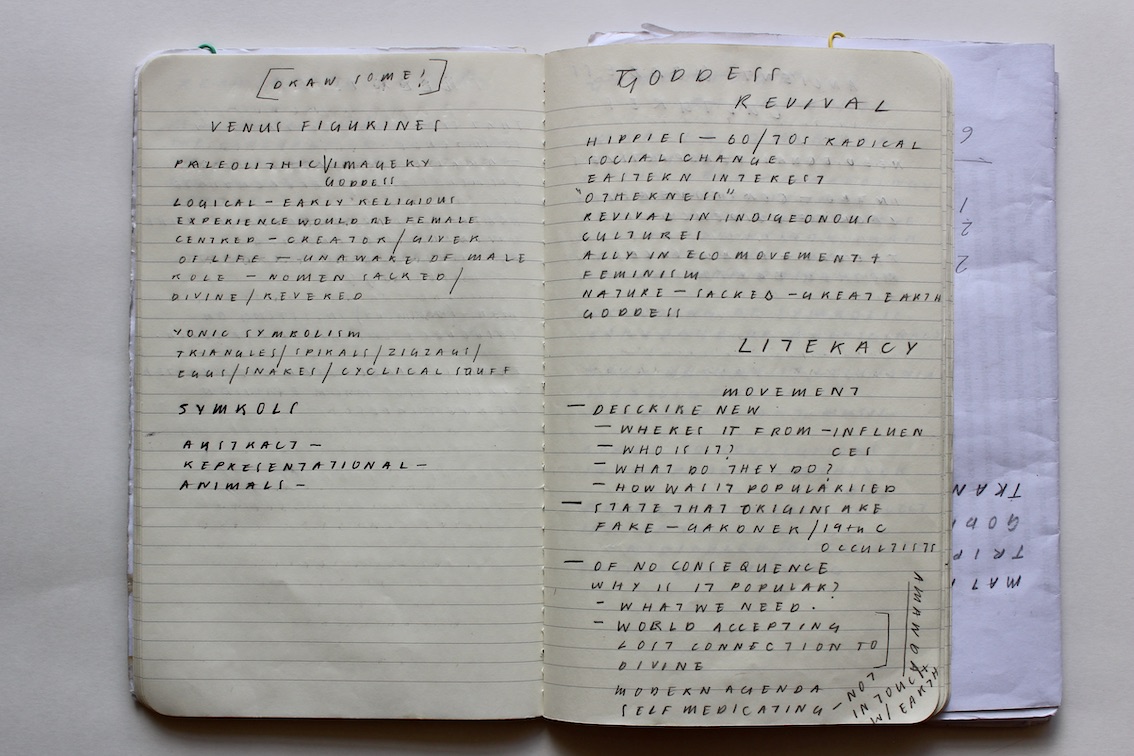 [DRAW SOME!]
VENUS FIGURINES
PALEOLITHIC \/ IMAGERY
GODDESS
LOGICAL – EARLY RELIGIOUS
EXPERIENCE WOULD BE FEMALE
CENTRED – CREATOR / GIVER
OF LIFE – UNAWARE OF MALE
ROLE – WOMEN SACRED /
DIVINE / REVERED
YONIC SYMBOLISM
TRIANGLES / SPIRALS / ZIGZAGS /
EGGS / SNAKES / CYCLICAL STUFF
SYMBOLS
ABSTRACT –
REPRESENTATIONAL –
ANIMALS –
GODDESS
REVIVAL
HIPPIES – 60/70S RADICAL
SOCIAL CHANGE
EASTERN INTEREST
"OTHERNESS"
REVIVAL IN INDIGEONOUS
CULTURES
ALLY IN ECO MOVEMENT +
FEMINISM
NATURE – SACRED – GREAT EARTH
GODDESS
LITERACY
MOVEMENT
– DESCRIBE NEW
– WHERES IT FROM – INFLUEN
CES
– WHO IS IT?
– WHAT DO THEY DO?
– HOW WAS IT POPULARISED
– STATE THAT ORIGINS ARE
FAKE – GARDNER / 19th C
OCCULTISTS
– OF NO CONSEQUENCE
WHY IS IT POPULAR?
– WHAT WE NEED.
– WORLD ACCEPTING
LOST CONNECTION TO
DIVINE
AMANDA
MODERN AGENDA
SELF MEDICATING – NOT
IN TOUCH
W/ EARTH
6
1
2
2
TRAN
GOD
TRIP
MAT